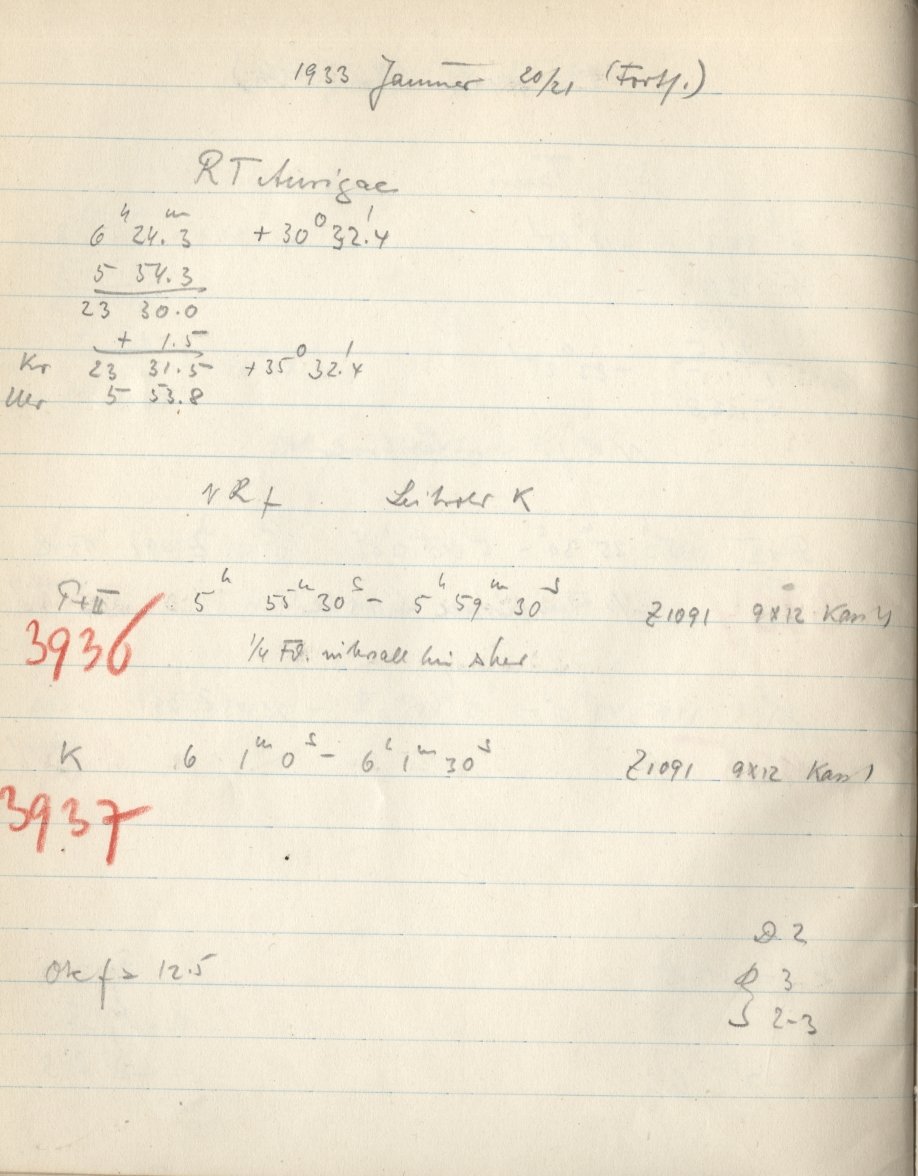 1933 Januar 20/21 (Forts.)
RT Aurigae
6ʰ 24.ᵐ3 +30° 32.'4
5 54.3
23 30.0
+ 1.5
Kr 23 31.5 +35° 32.'4
Ur 5 53.8
R f K
P+II 5ʰ 55ᵐ 30ˢ – 5ʰ 59ᵐ 30ˢ Z1091 9x12 Kass
3936 1/4 Fd. intervall
K 6 1ᵐ 0ˢ – 6ʰ 1ᵐ 30ˢ Z1091 9x12 Kass 1
3937
2
Okf = 12.5 3
2-3